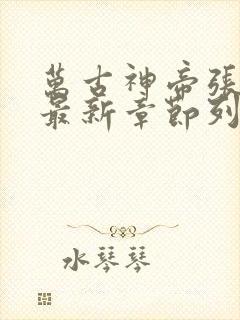 萬古神帝張
最新章節列
水琴琴